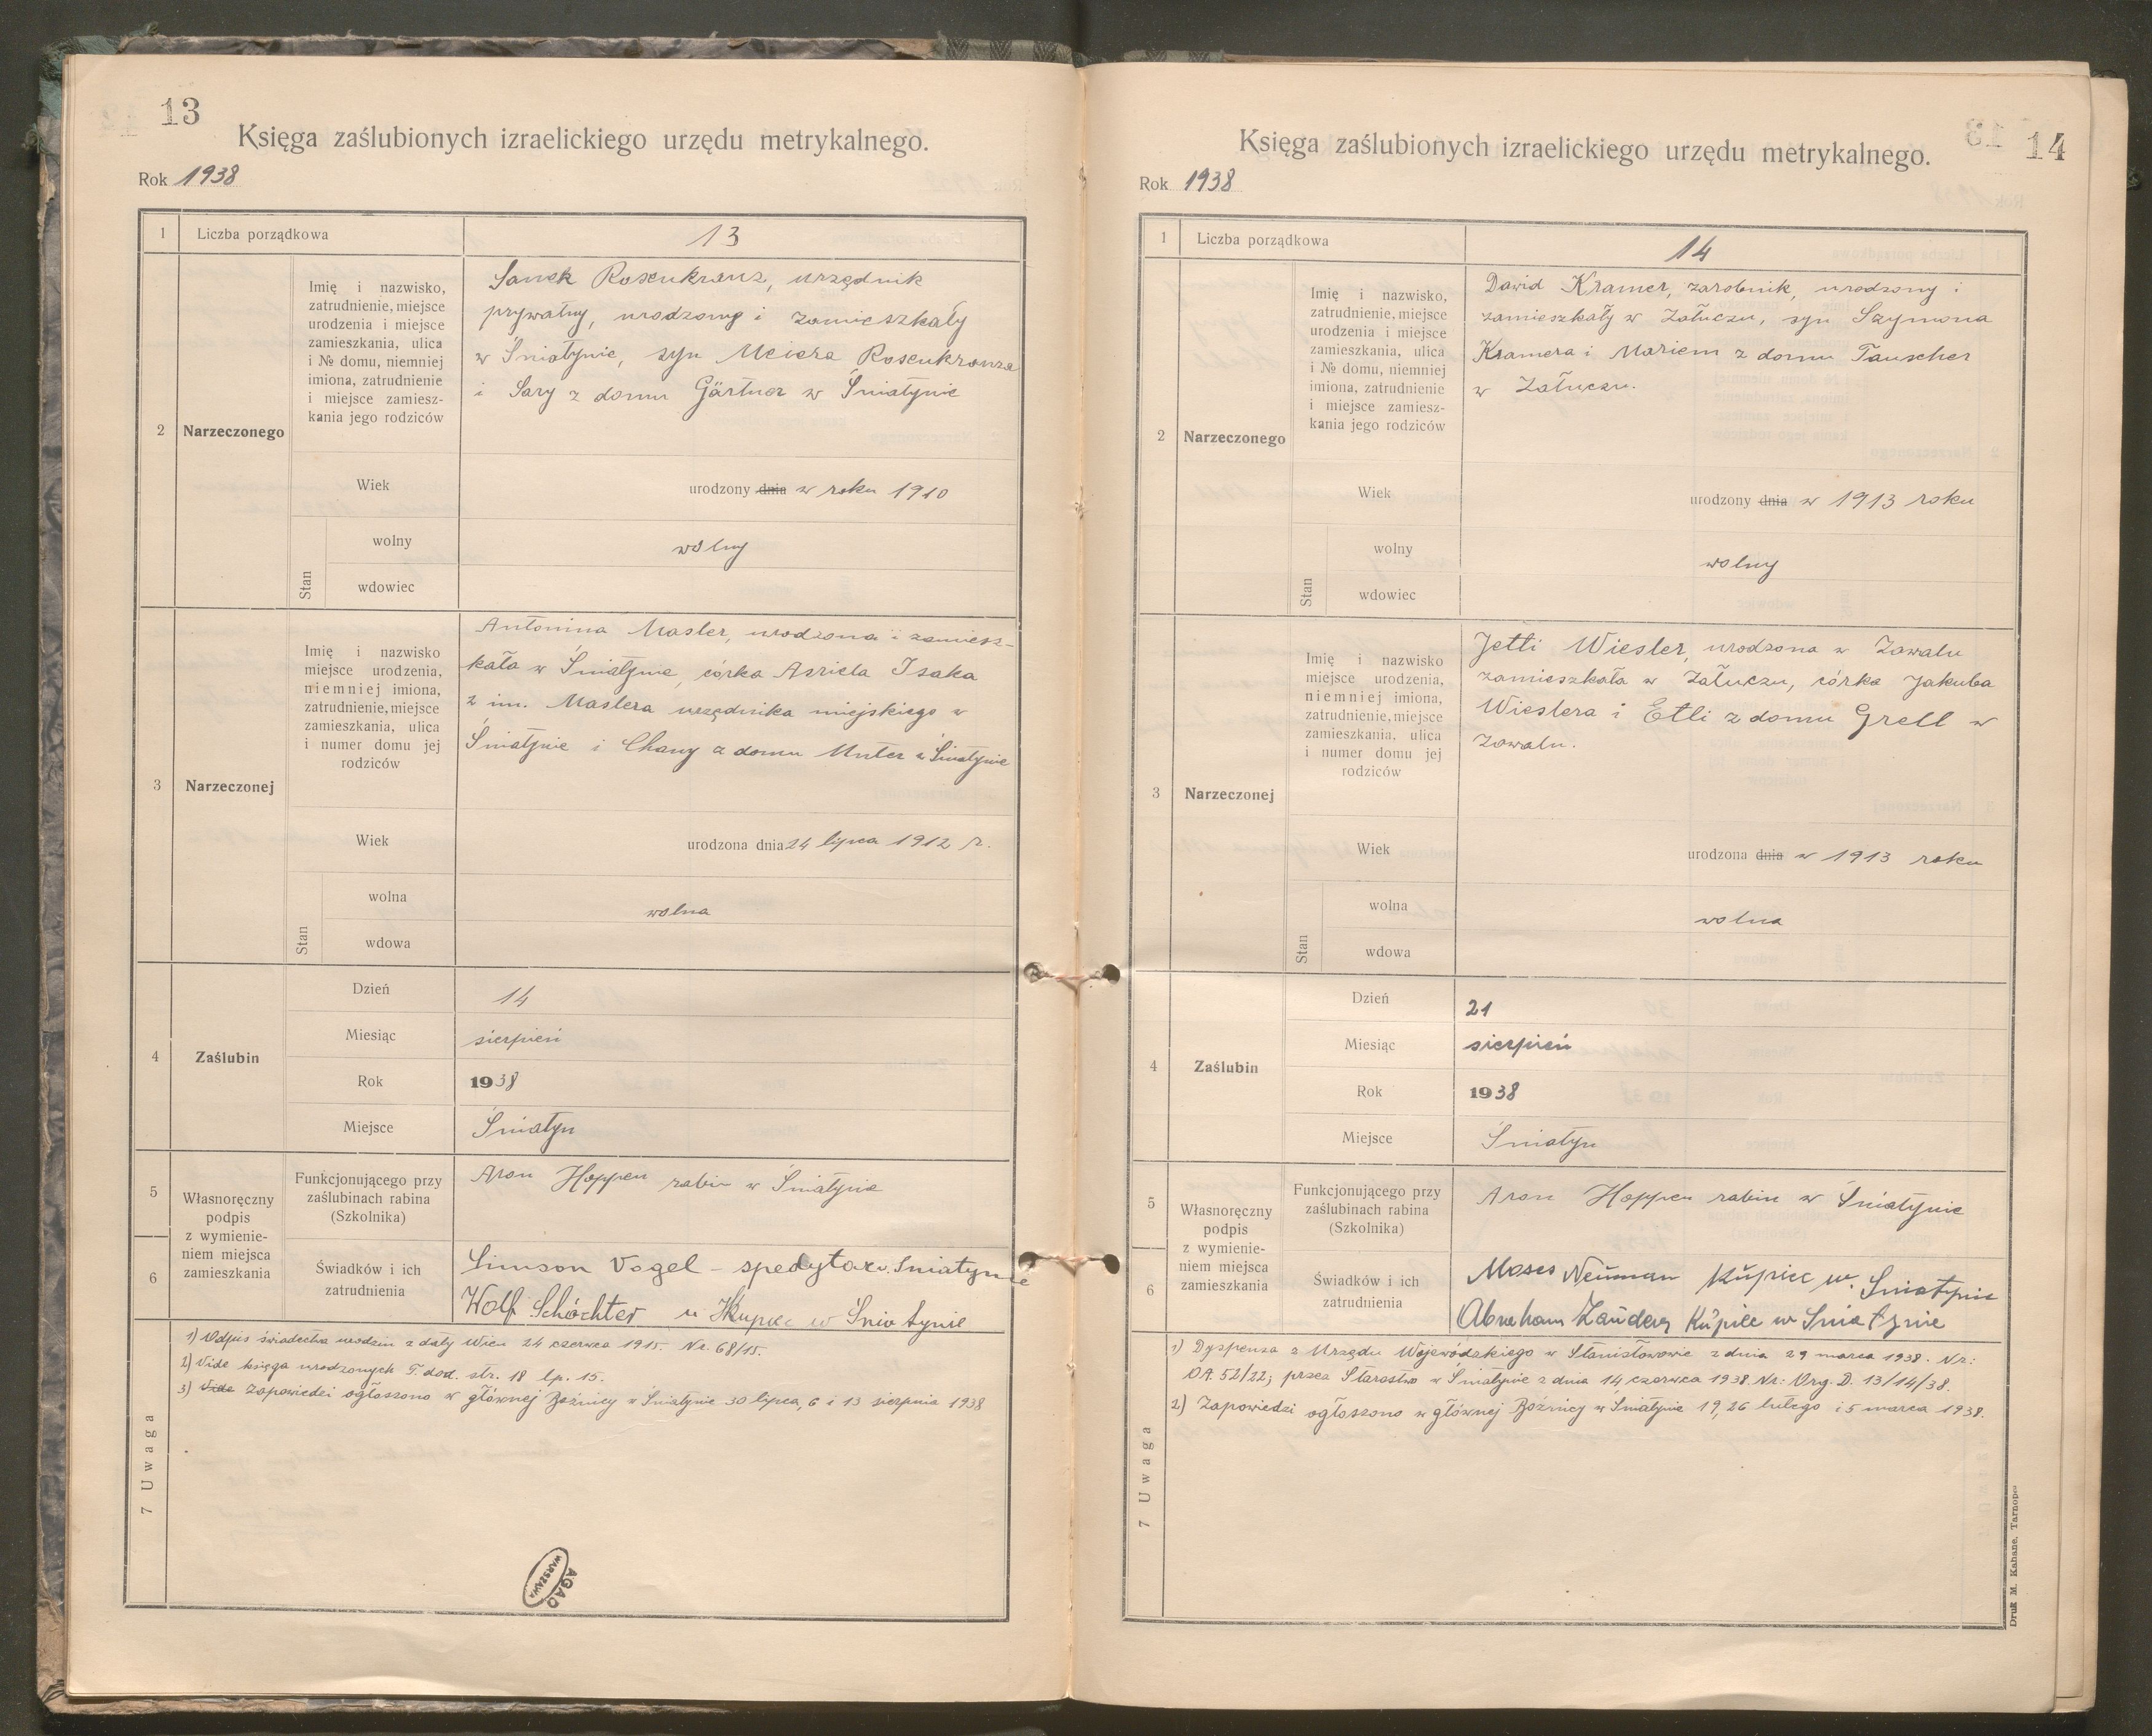 13
Księga zaślubionych izraelickiego urzędu metrykalnego.
Rok 1938
1 Liczba porządkowa 13
2 Narzeczonego
Imię i nazwisko,
zatrudnienie, miejsce
urodzenia i miejsce
zamieszkania, ulica
i № domu, niemniej
imiona, zatrudnienie
i miejsce zamiesz-
kania jego rodziców
Rosenkranz, urzędnik
prywatny, urodzony i zamieszkały
w Śniatynie, syn Meiera Rosenkranza
i Sary z domu Gärtner w Śniatynie
Wiek urodzony dnia w roku 1910
Stan
wolny
wdowiec
wolny
3 Narzeczonej
Imię i nazwisko
miejsce urodzenia,
niemniej imiona,
zatrudnienie, miejsce
zamieszkania, ulica
i numer domu jej
rodziców
Antonina Masler, urodzona i zamiesz-
kała w Śniatynie, córka Asriela Isaka
2 im. Maslera urzędnika miejskiego w
Śniatynie i Chany z domu Unter w Śniatynie
Wiek urodzona dnia 24 lipca 1912 r.
Stan
wolna
wdowa
wolna
4 Zaślubin
Dzień 14
Miesiąc sierpień
Rok 1938
Miejsce Śniatyn
5
6
Własnoręczny
podpis
z wymienie-
niem miejsca
zamieszkania
Funkcjonującego przy
zaślubinach rabina
(Szkolnika)
Aron Hoppen rabin w Śniatynie
Świadków i ich
zatrudnienia
Simson Vogel - spedytor w. Sniatynie
Wolf Schächter Kupiec w Sniatynie
7 Uwaga
1) Odpis świadectwa urodzin z daty Wien 24 czerwca 1915. Nr. 68/15.
2) Vide księga urodzonych T. dod. str. 18 lp. 15.
3) Vide Zapowiedzi ogłoszono w głównej Bóżnicy w Śniatynie 30 lipca, 6 i 13 sierpnia 1938
AGAD
WARSZAWA
14
Księga zaślubionych izraelickiego urzędu metrykalnego.
Rok 1938
1 Liczba porządkowa 14
2 Narzeczonego
Imię i nazwisko,
zatrudnienie, miejsce
urodzenia i miejsce
zamieszkania, ulica
i № domu, niemniej
imiona, zatrudnienie
i miejsce zamiesz-
kania jego rodziców
Dawid Kramer, zarobnik, urodzony i
zamieszkały w Załuczu, syn Szymona
Kramera i Mariem z domu Tauscher
w Załuczu.
Wiek urodzony dnia w 1913 roku
Stan
wolny
wdowiec
wolny
3 Narzeczonej
Imię i nazwisko
miejsce urodzenia,
niemniej imiona,
zatrudnienie, miejsce
zamieszkania, ulica
i numer domu jej
rodziców
Jetti Wiesler, urodzona w Zawalu
zamieszkała w Załuczu, córka Jakuba
Wieslera i Etli z domu Grell w
Zawalu.
Wiek urodzona dnia w 1913 roku
Stan
wolna
wdowa
wolna
4 Zaślubin
Dzień 21
Miesiąc sierpień
Rok 1938
Miejsce Śniatyn
5
6
Własnoręczny
podpis
z wymienie-
niem miejsca
zamieszkania
Funkcjonującego przy
zaślubinach rabina
(Szkolnika)
Aron Hoppen rabin w Śniatynie
Świadków i ich
zatrudnienia
Moses Neuman Kupiec w. Sniatynie
Abraham Kupiec w Sniatynie
7 Uwaga
1) Dyspensa z Urzędu Wojewódzkiego w Stanisławowie z dnia 29 marca 1938. Nr:
OA. 52/22; przez Starostwo w Śniatynie z dnia 14 czerwca 1938. Nr: Org. D. 13/14/38.
2) Zapowiedzi ogłoszono w głównej Bóżnicy w Śniatynie 19, 26 lutego i 5 marca 1938.
Druk M. Kahane, Tarnopol